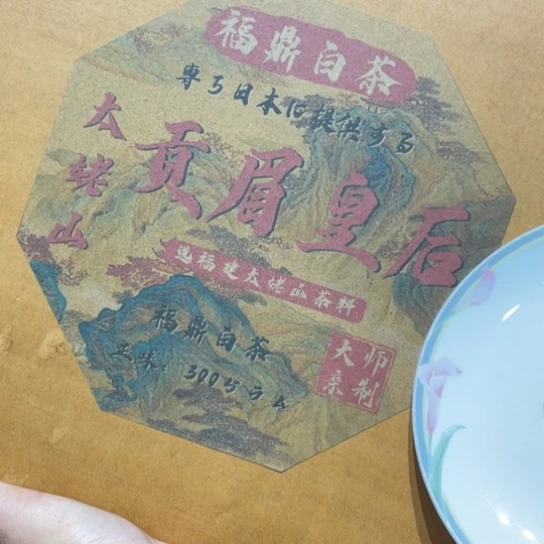 福鼎白茶
専ら日本に提供する
太姥山
贡眉皇后
选福建太姥山茶料
福鼎白茶
正味：300グラム
大师
亲制